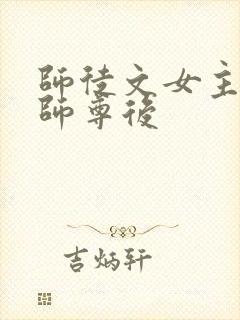 師徒文女主
師尊後
吉炳軒